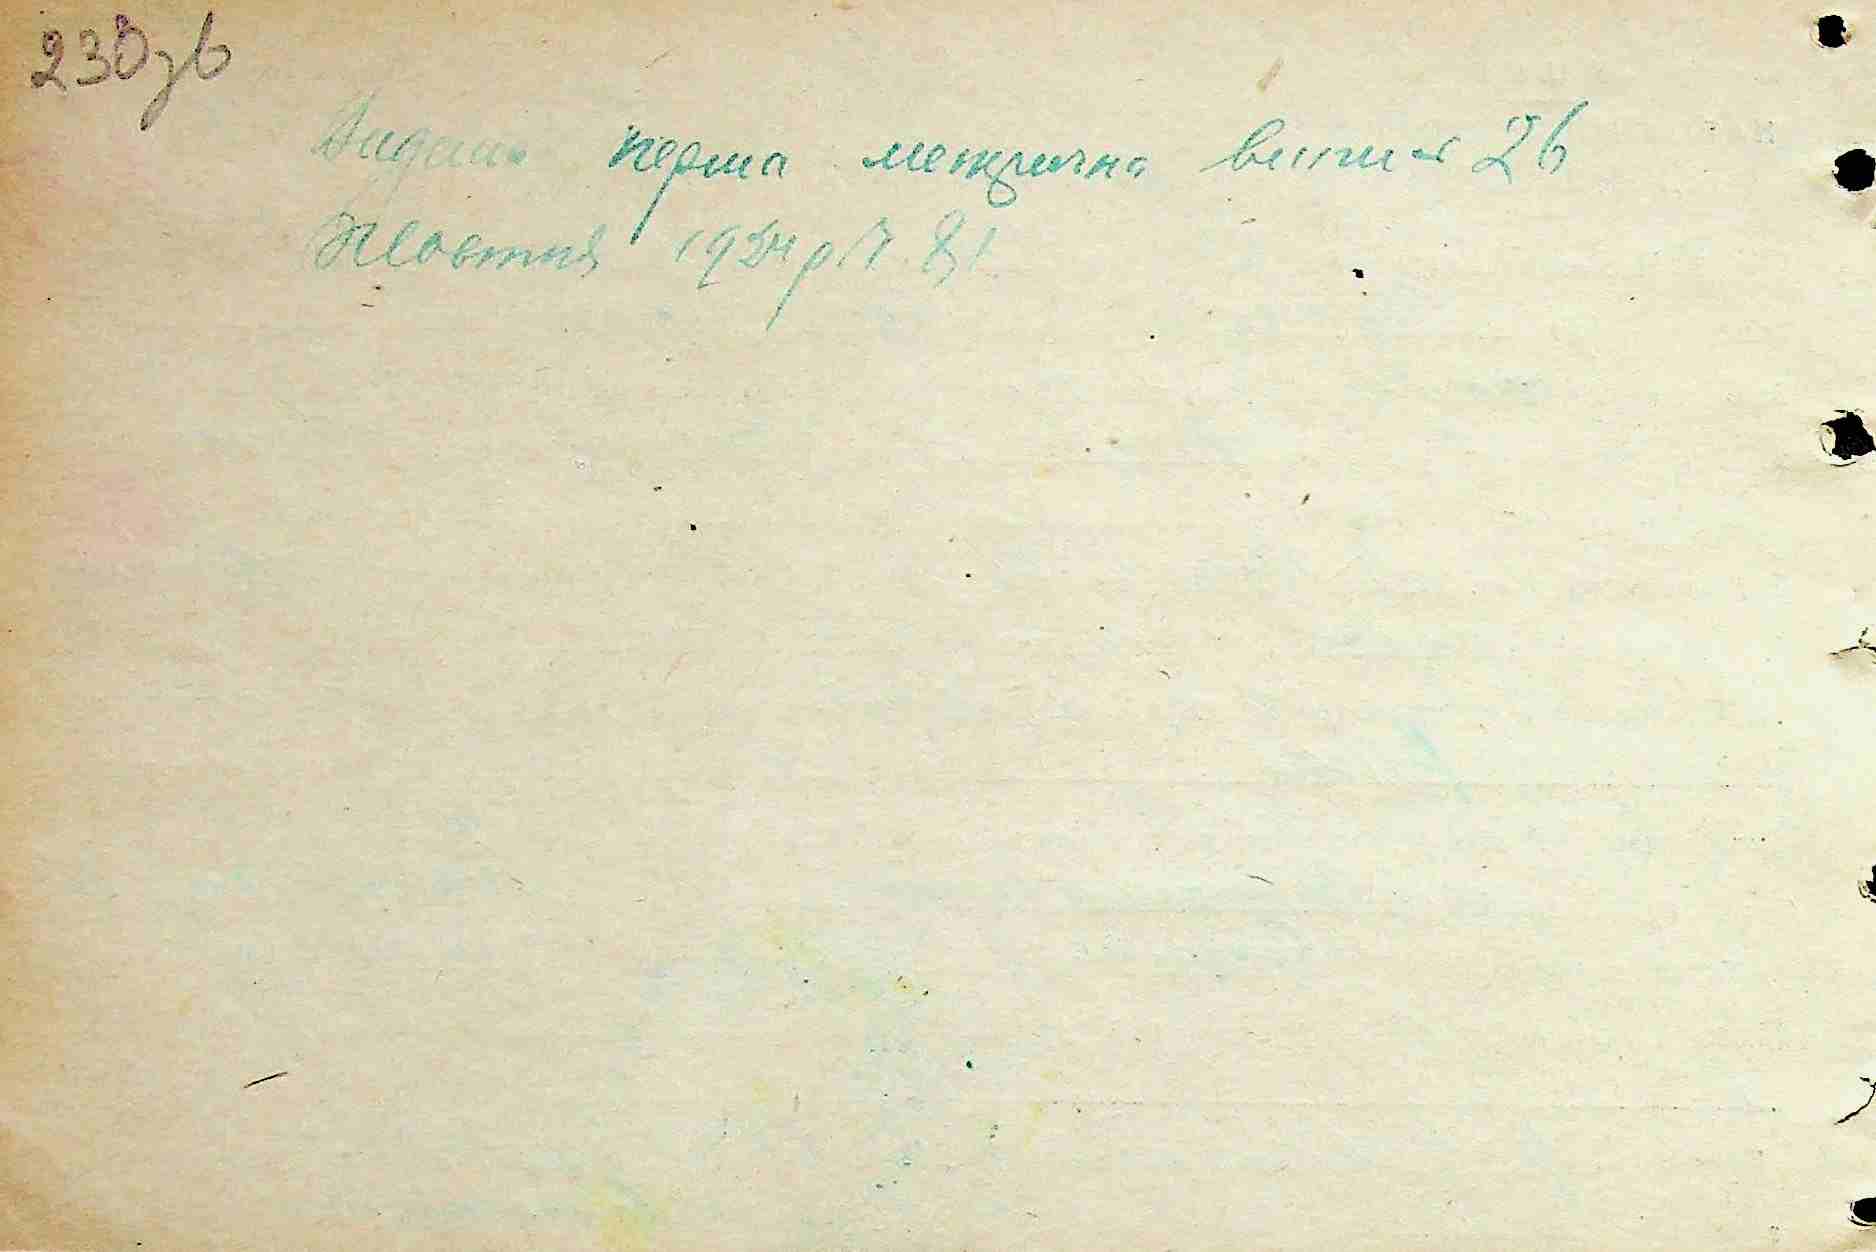 230зв
Видана перша метрична випись 26
Жовтня 1924 р